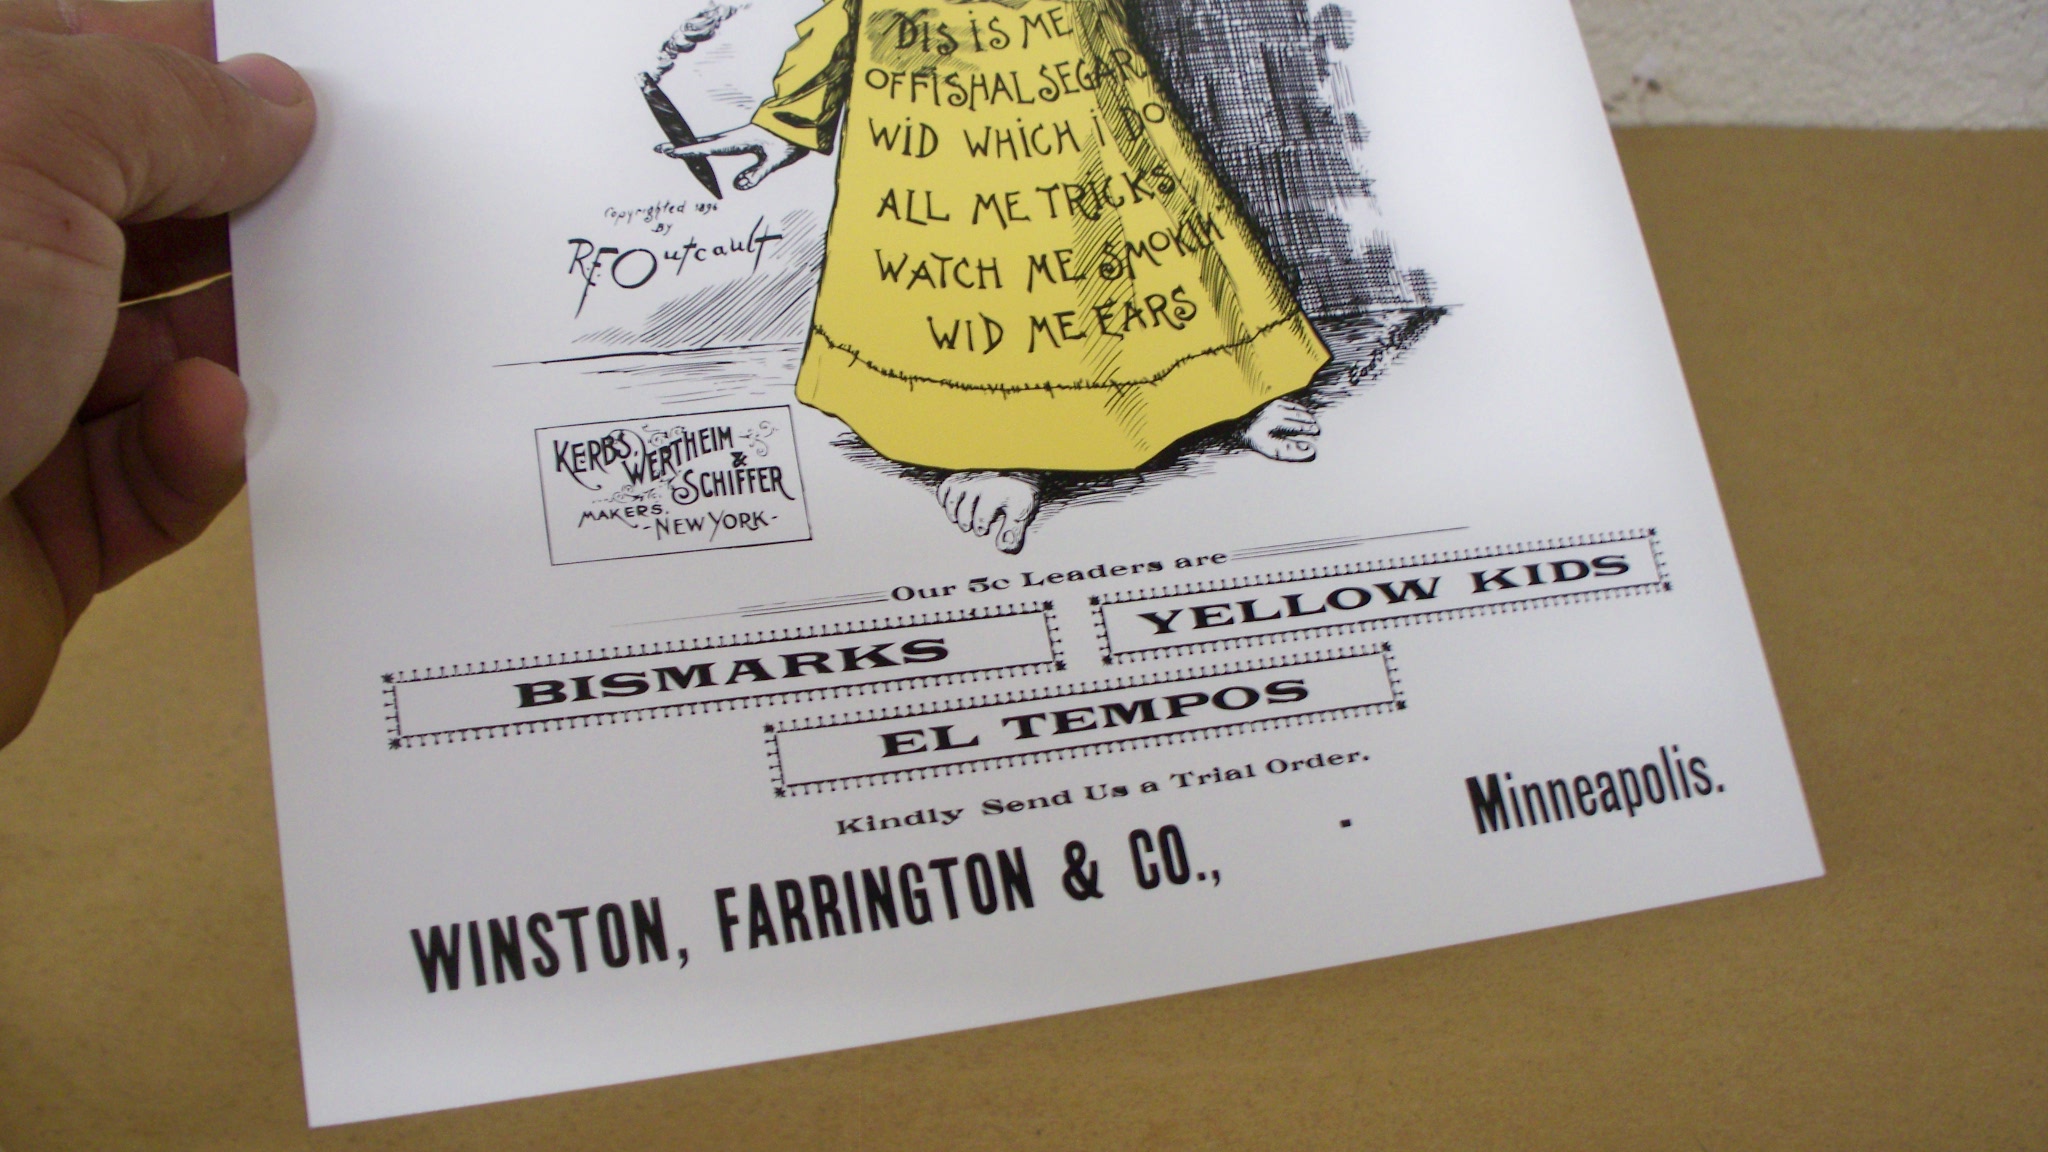 DIS IS ME
OFFISHAL SEGAR
WID WHICH I DO
ALL ME TRICKS
WATCH ME SMOKIN'
WID ME EARS
Copyrighted 1896
BY
R.F. Outcault
KERBS, WERTHEIM & SCHIFFER
MAKERS.
-NEW YORK-
Our 5c Leaders are
BISMARKS
YELLOW KIDS
EL TEMPOS
Kindly Send Us a Trial Order.
WINSTON, FARRINGTON & CO., - Minneapolis.